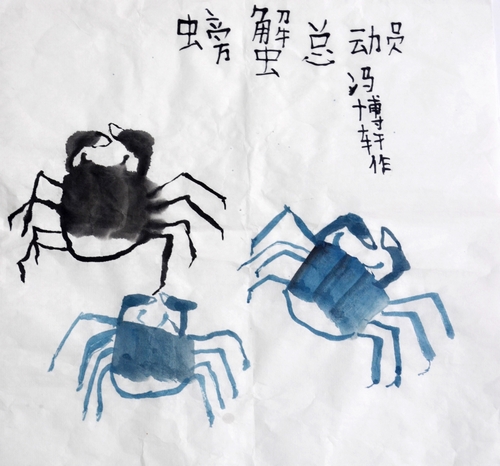 螃蟹总动员
冯博轩作